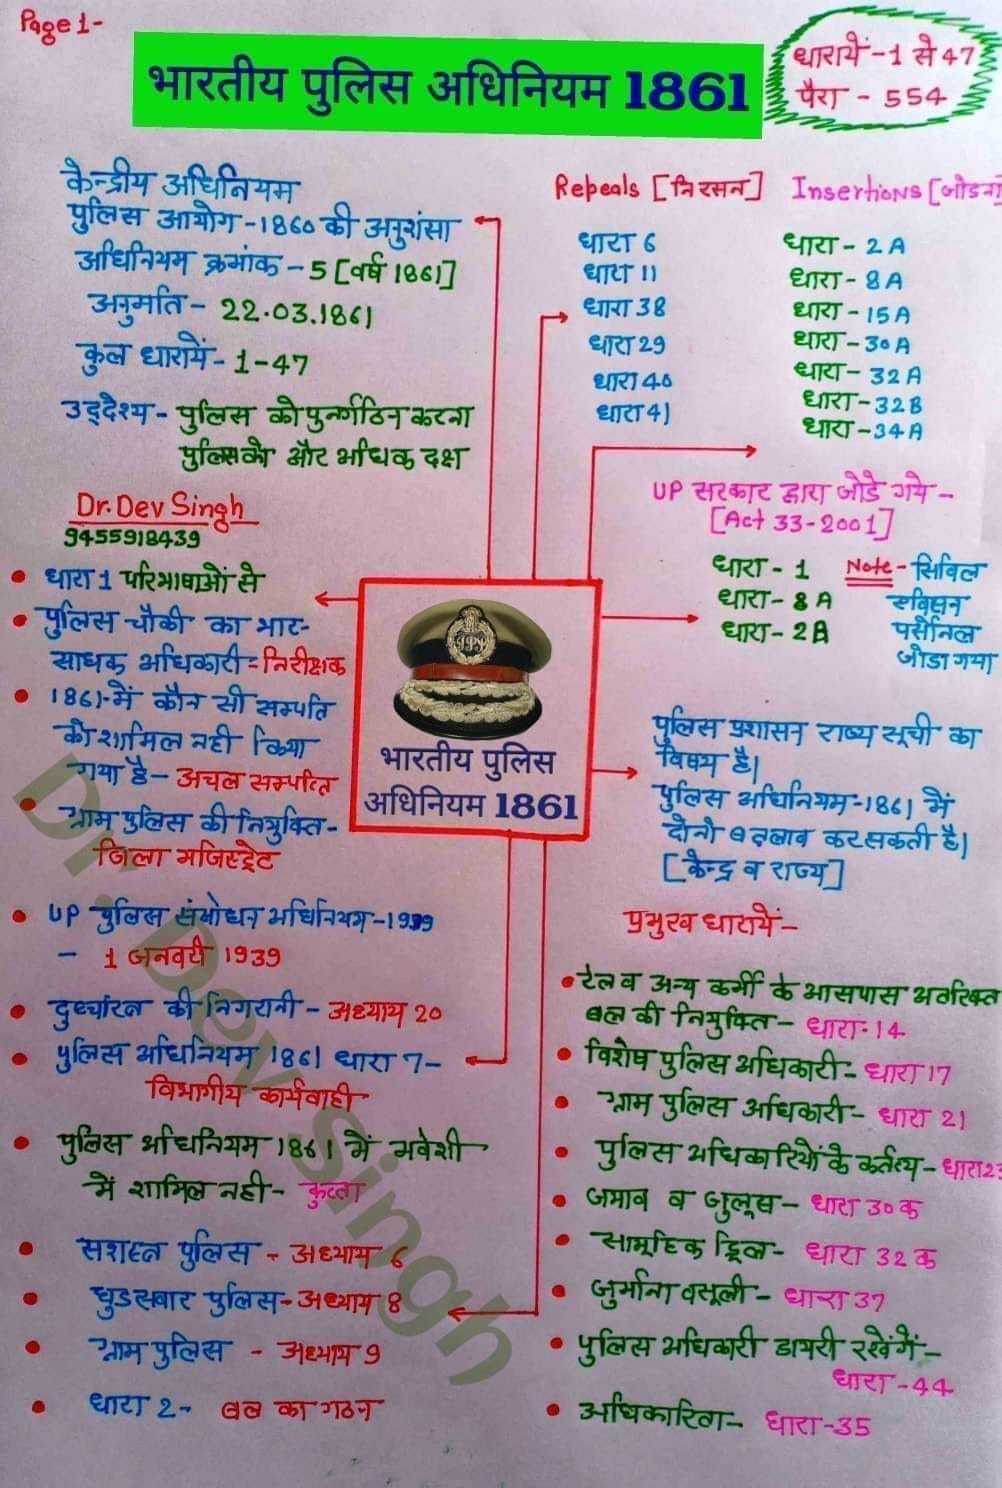 Page 1-
भारतीय पुलिस अधिनियम 1861
धारायें-1 से 47
पैरा - 554
केन्द्रीय अधिनियम
पुलिस आयोग-1860 की अनुशंसा
अधिनियम क्रमांक-5 [वर्ष 1861]
अनुमति- 22.03.1861
कुल धारायें- 1-47
उद्देश्य- पुलिस को पुर्नगठित करना
पुलिस को और अधिक दक्ष
Repeals [निरसन]
धारा 6
धारा 11
धारा 38
धारा 29
धारा 40
धारा 41
Insertions [जोडना]
धारा - 2A
धारा - 8A
धारा - 15A
धारा - 30A
धारा - 32A
धारा - 32B
धारा - 34A
UP सरकार द्वारा जोडे गये-
[Act 33-2001]
धारा - 1
धारा - 8A
धारा - 2B
Note- सिविल
पर्सोनल
जोडा गया
Dr. Dev Singh
9455918439
धारा 1 परिभाषाओं से
पुलिस चौकी का भार-
साधक अधिकारी = निरीक्षक
1861-में कौन सी सम्पति
को शामिल नही किया
गया है- अचल सम्पत्ति
ग्राम पुलिस की नियुक्ति-
जिला मजिस्ट्रेट
UP पुलिस संशोधन अधिनियम-1939
- 1 जनवरी 1939
दुष्चरित्र की निगरानी - अध्याय 20
पुलिस अधिनियम 1861 धारा 7-
विभागीय कार्यवाही
पुलिस अधिनियम 1861 में मवेशी
में शामिल नही- कुत्ता
सशस्त्र पुलिस - अध्याय 6
घुडसवार पुलिस- अध्याय 8
ग्राम पुलिस - अध्याय 9
धारा 2- बल का गठन
भारतीय पुलिस
अधिनियम 1861
पुलिस प्रशासन राज्य सूची का
विषय है।
पुलिस अधिनियम-1861 में
दोनो बदलाव कर सकती है।
[केन्द्र व राज्य]
प्रमुख धारायें-
रेल व अन्य कर्मी के आसपास अतरिक्त
बल की नियुक्ति- धारा-14
विशेष पुलिस अधिकारी- धारा 17
ग्राम पुलिस अधिकारी- धारा 21
पुलिस अधिकारियों के कर्तव्य- धारा 23
जमाव व जुलूस- धारा 30 क
सामूहिक ड्रिल- धारा 32 क
जुर्माना वसूली- धारा 37
पुलिस अधिकारी डायरी रखेगें-
धारा - 44
अधिकारिता- धारा-35
Dr. Dev Singh